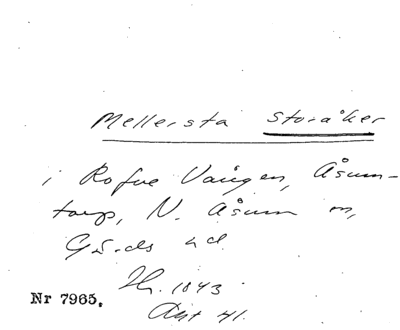 Mellersta Storåker
i Rofve Vången, Åsum-
torp, N. Åsum sn,
Gärds hd.
Hr. 1843
Akt 41.
Nr 7965.